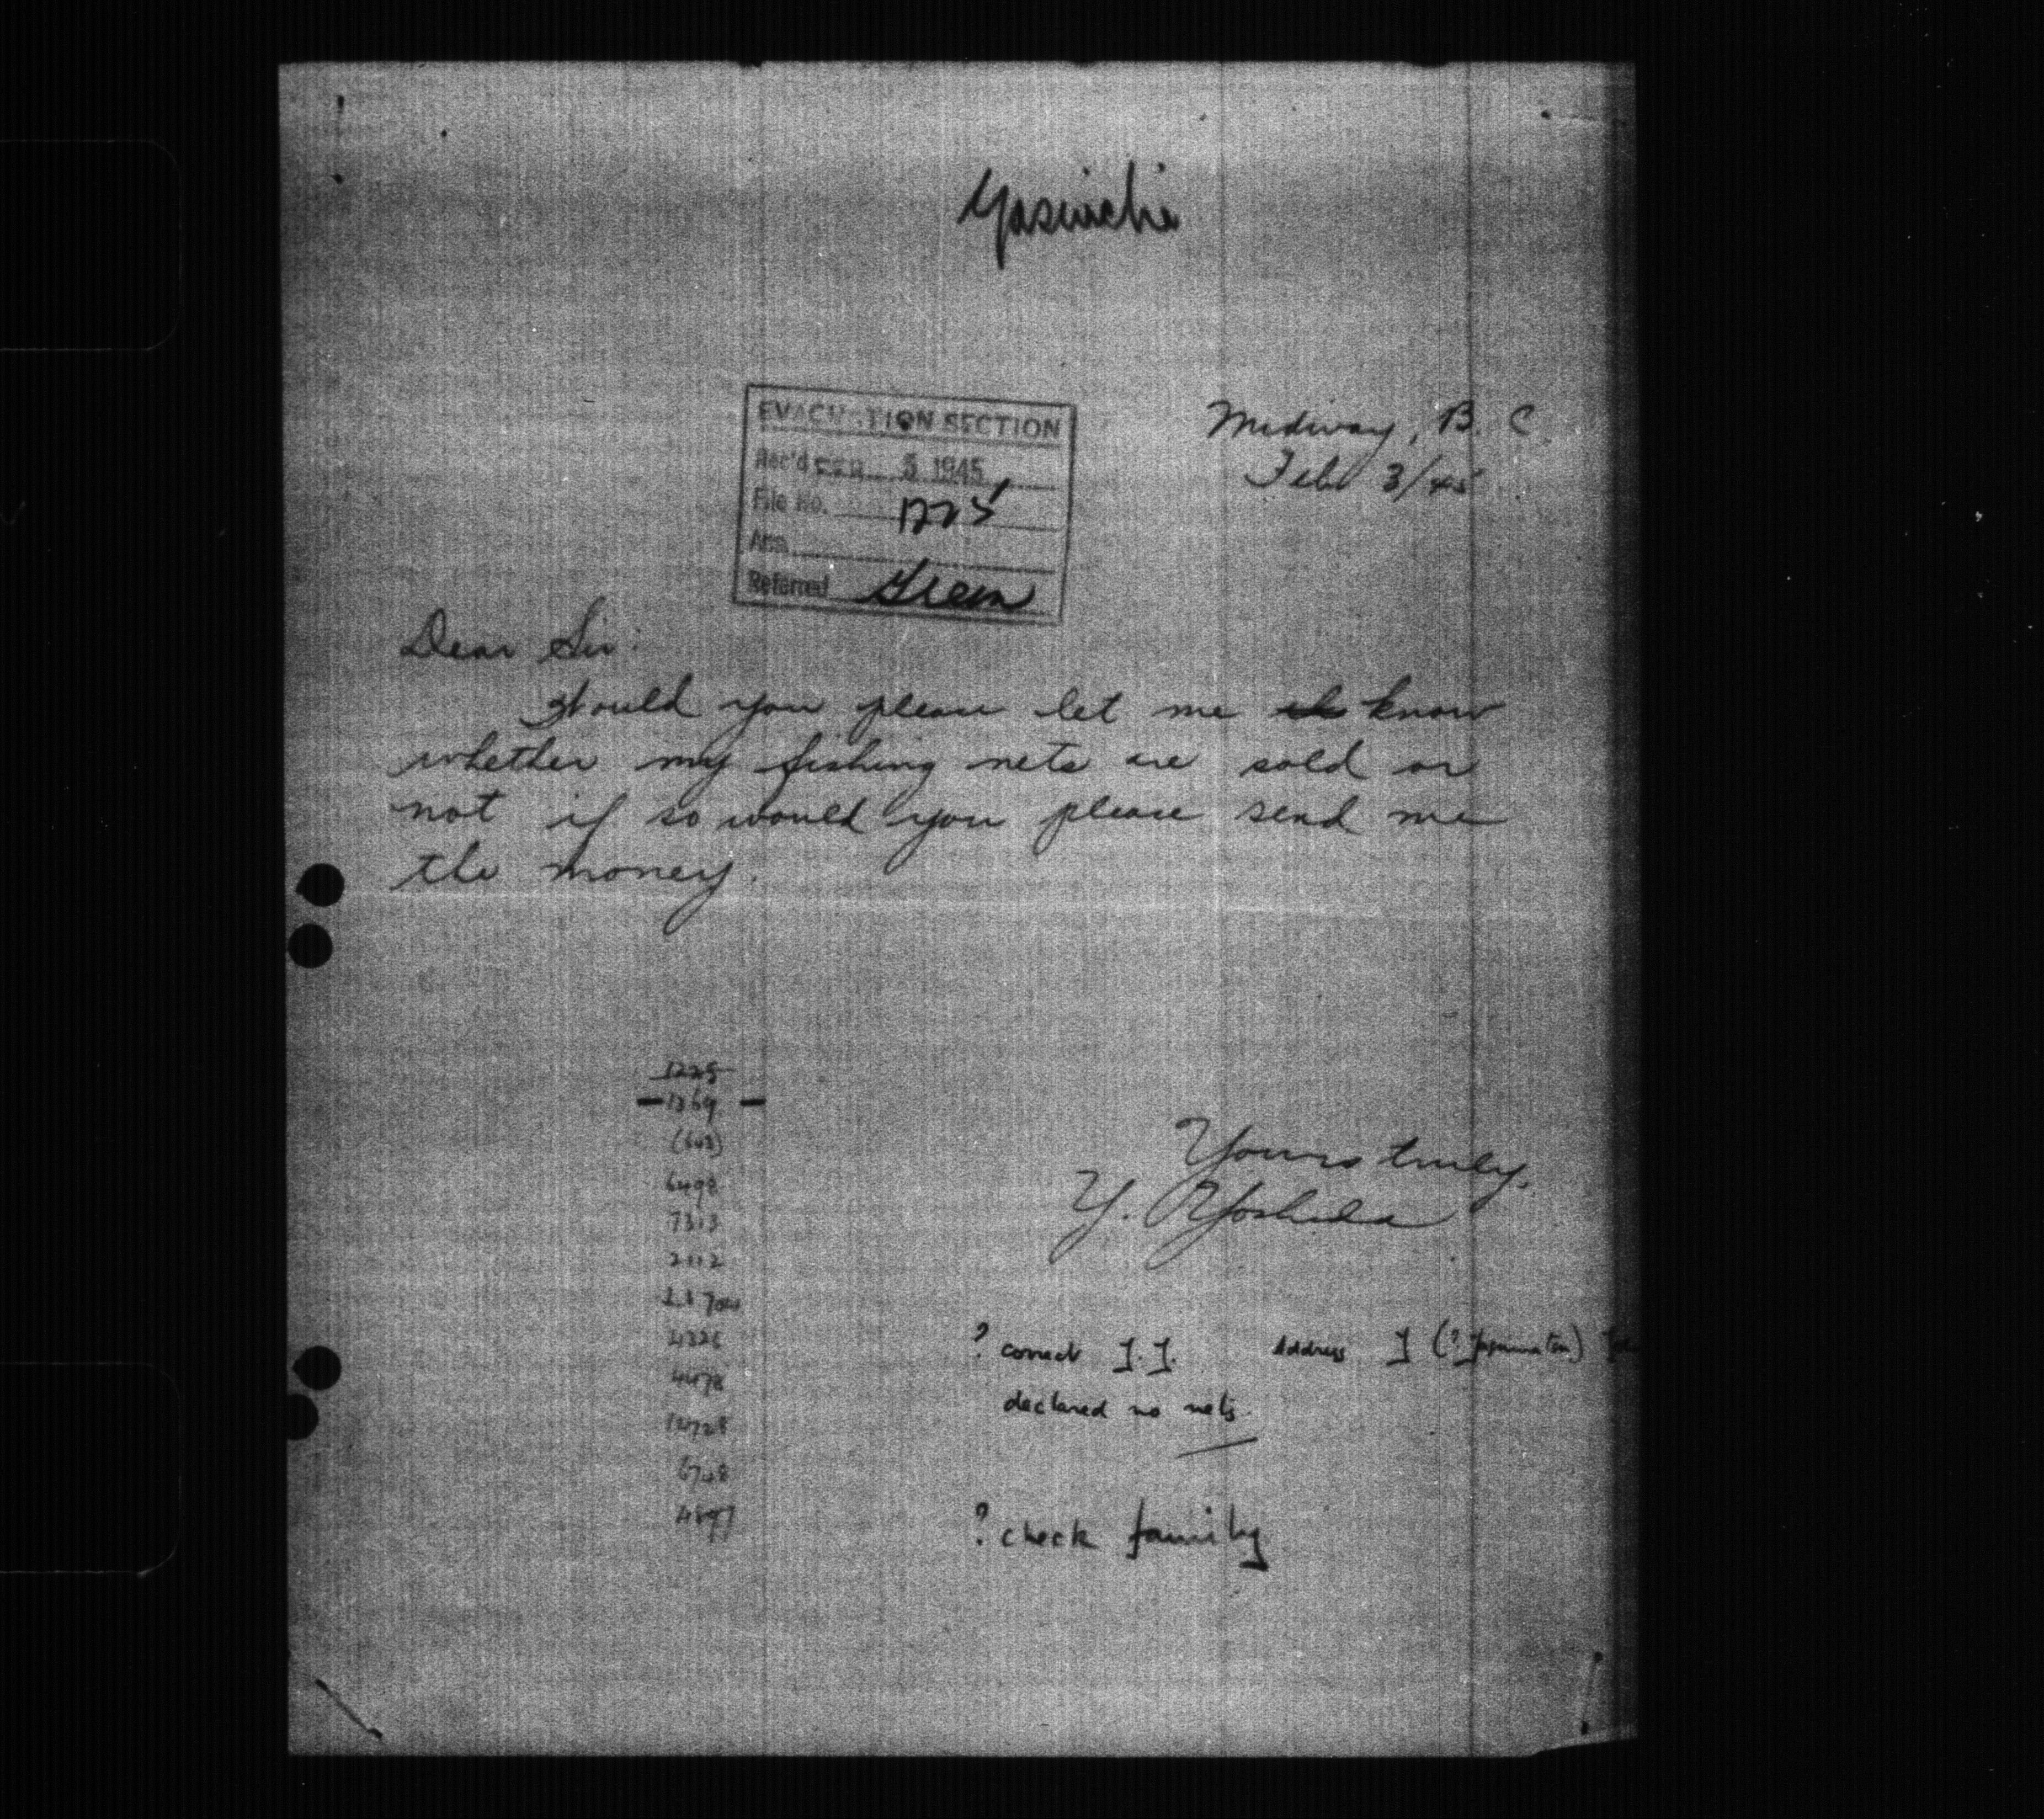 Yasuichi
EVACUATION SECTION
Rec'd FEB 5 1945
File No. 1225
Ans.
Referred Green
Midway, B. C.
Feb 3/45
Dear Sir:
Would you please let me know
whether my fishing nets are sold or
not if so would you please send me
the money.
1225
1369
6498
7313
2112
4326
4478
12728
6748
4897
Yours truly,
Y. Yoshida
? correct Y.Y. Address Y
declared no nets.
? check family